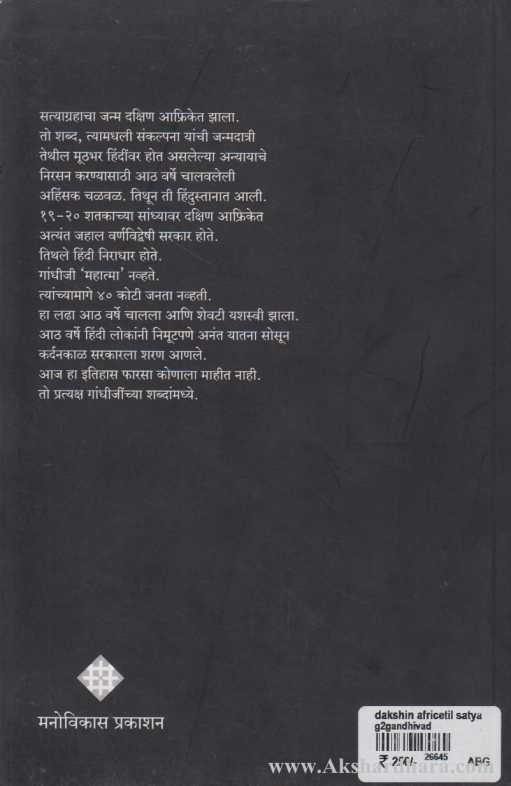 सत्याग्रहाचा जन्म दक्षिण आफ्रिकेत झाला.
तो शब्द, त्यामधली संकल्पना यांची जन्मदात्री
तेथील मूठभर हिंदींवर होत असलेल्या अन्यायाचे
निरसन करण्यासाठी आठ वर्षे चालवलेली
अहिंसक चळवळ. तिथून ती हिंदुस्तानात आली.
१९-२० शतकाच्या सांध्यावर दक्षिण आफ्रिकेत
अत्यंत जहाल वर्णविद्वेषी सरकार होते.
तिथले हिंदी निराधार होते.
गांधीजी ‘महात्मा’ नव्हते.
त्यांच्यामागे ४० कोटी जनता नव्हती.
हा लढा आठ वर्षे चालला आणि शेवटी यशस्वी झाला.
आठ वर्षे हिंदी लोकांनी निमूटपणे अनंत यातना सोसून
कर्दनकाळ सरकारला शरण आणले.
आज हा इतिहास फारसा कोणाला माहीत नाही.
तो प्रत्यक्ष गांधीजींच्या शब्दांमध्ये.
मनोविकास प्रकाशन
dakshin africetil satya
g2gandhivad
₹ 250/- 26645 ABG
www.Akshardhara.com